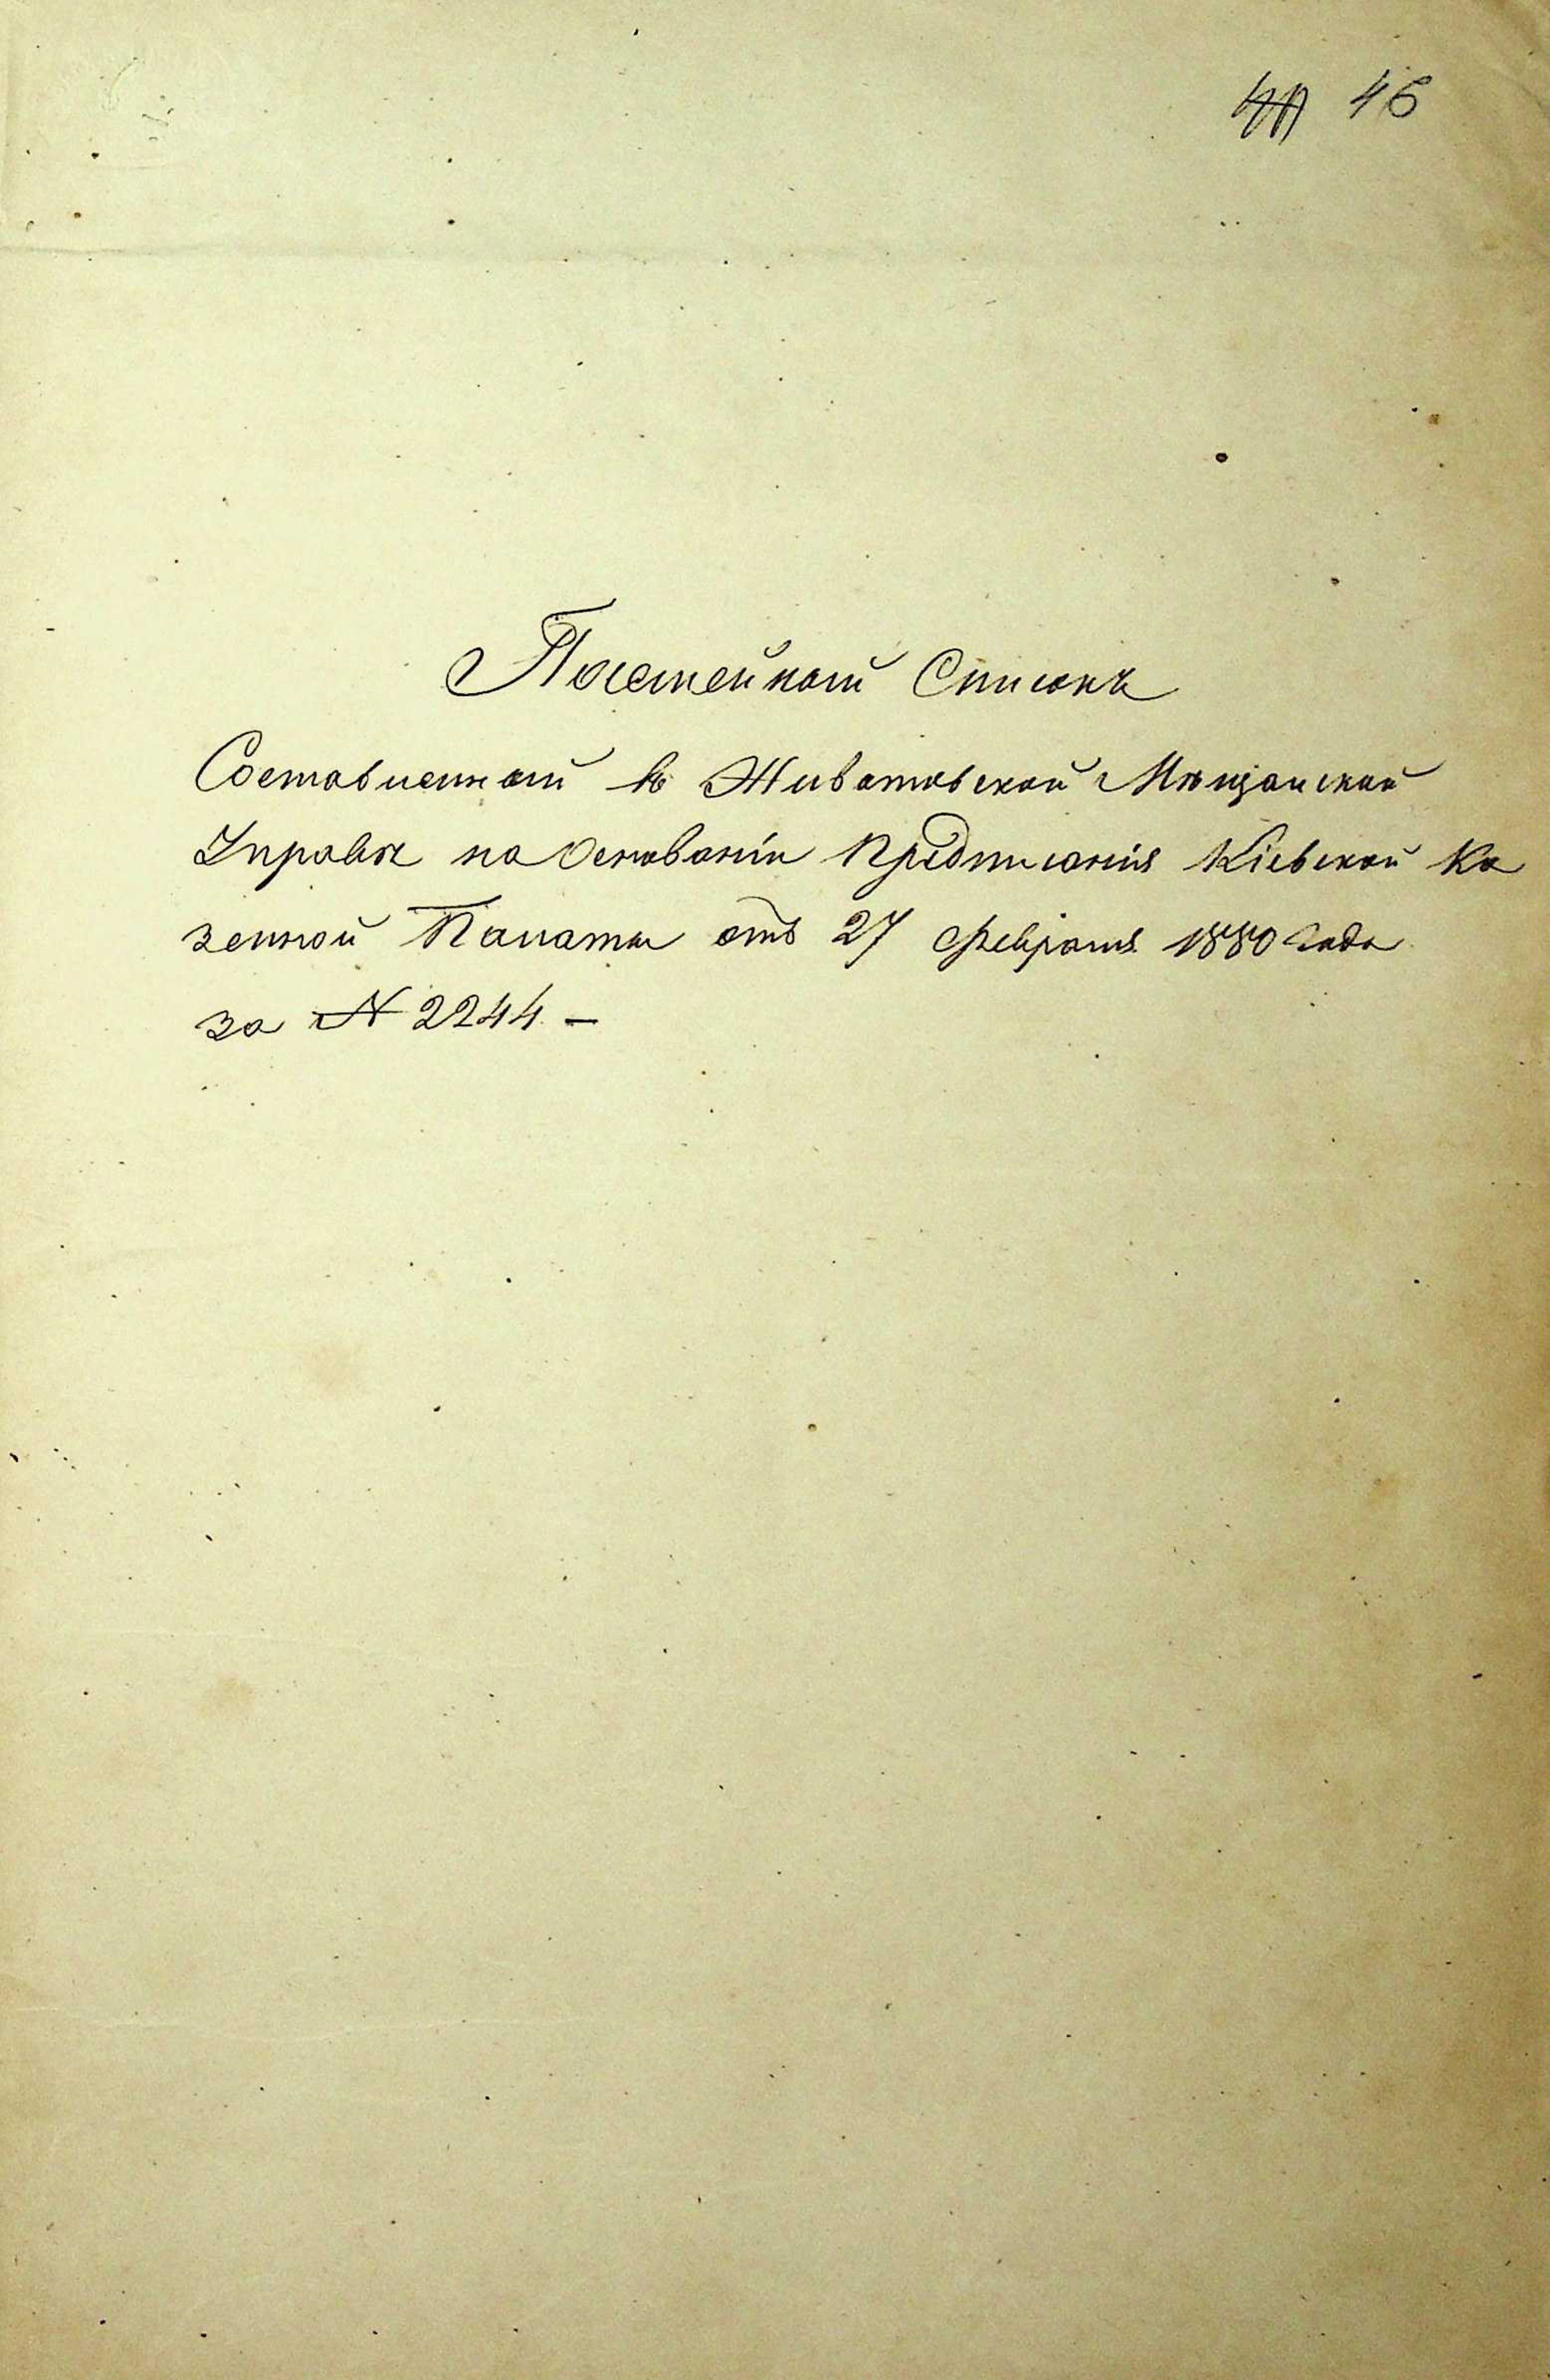 46
Посемейный Списокъ
Составленный въ Животовской Мѣщанской
Управѣ на Основаніи Предписанія Кіевской Ка
зенной Палаты отъ 27 февраля 1880 года
за № 2244 —